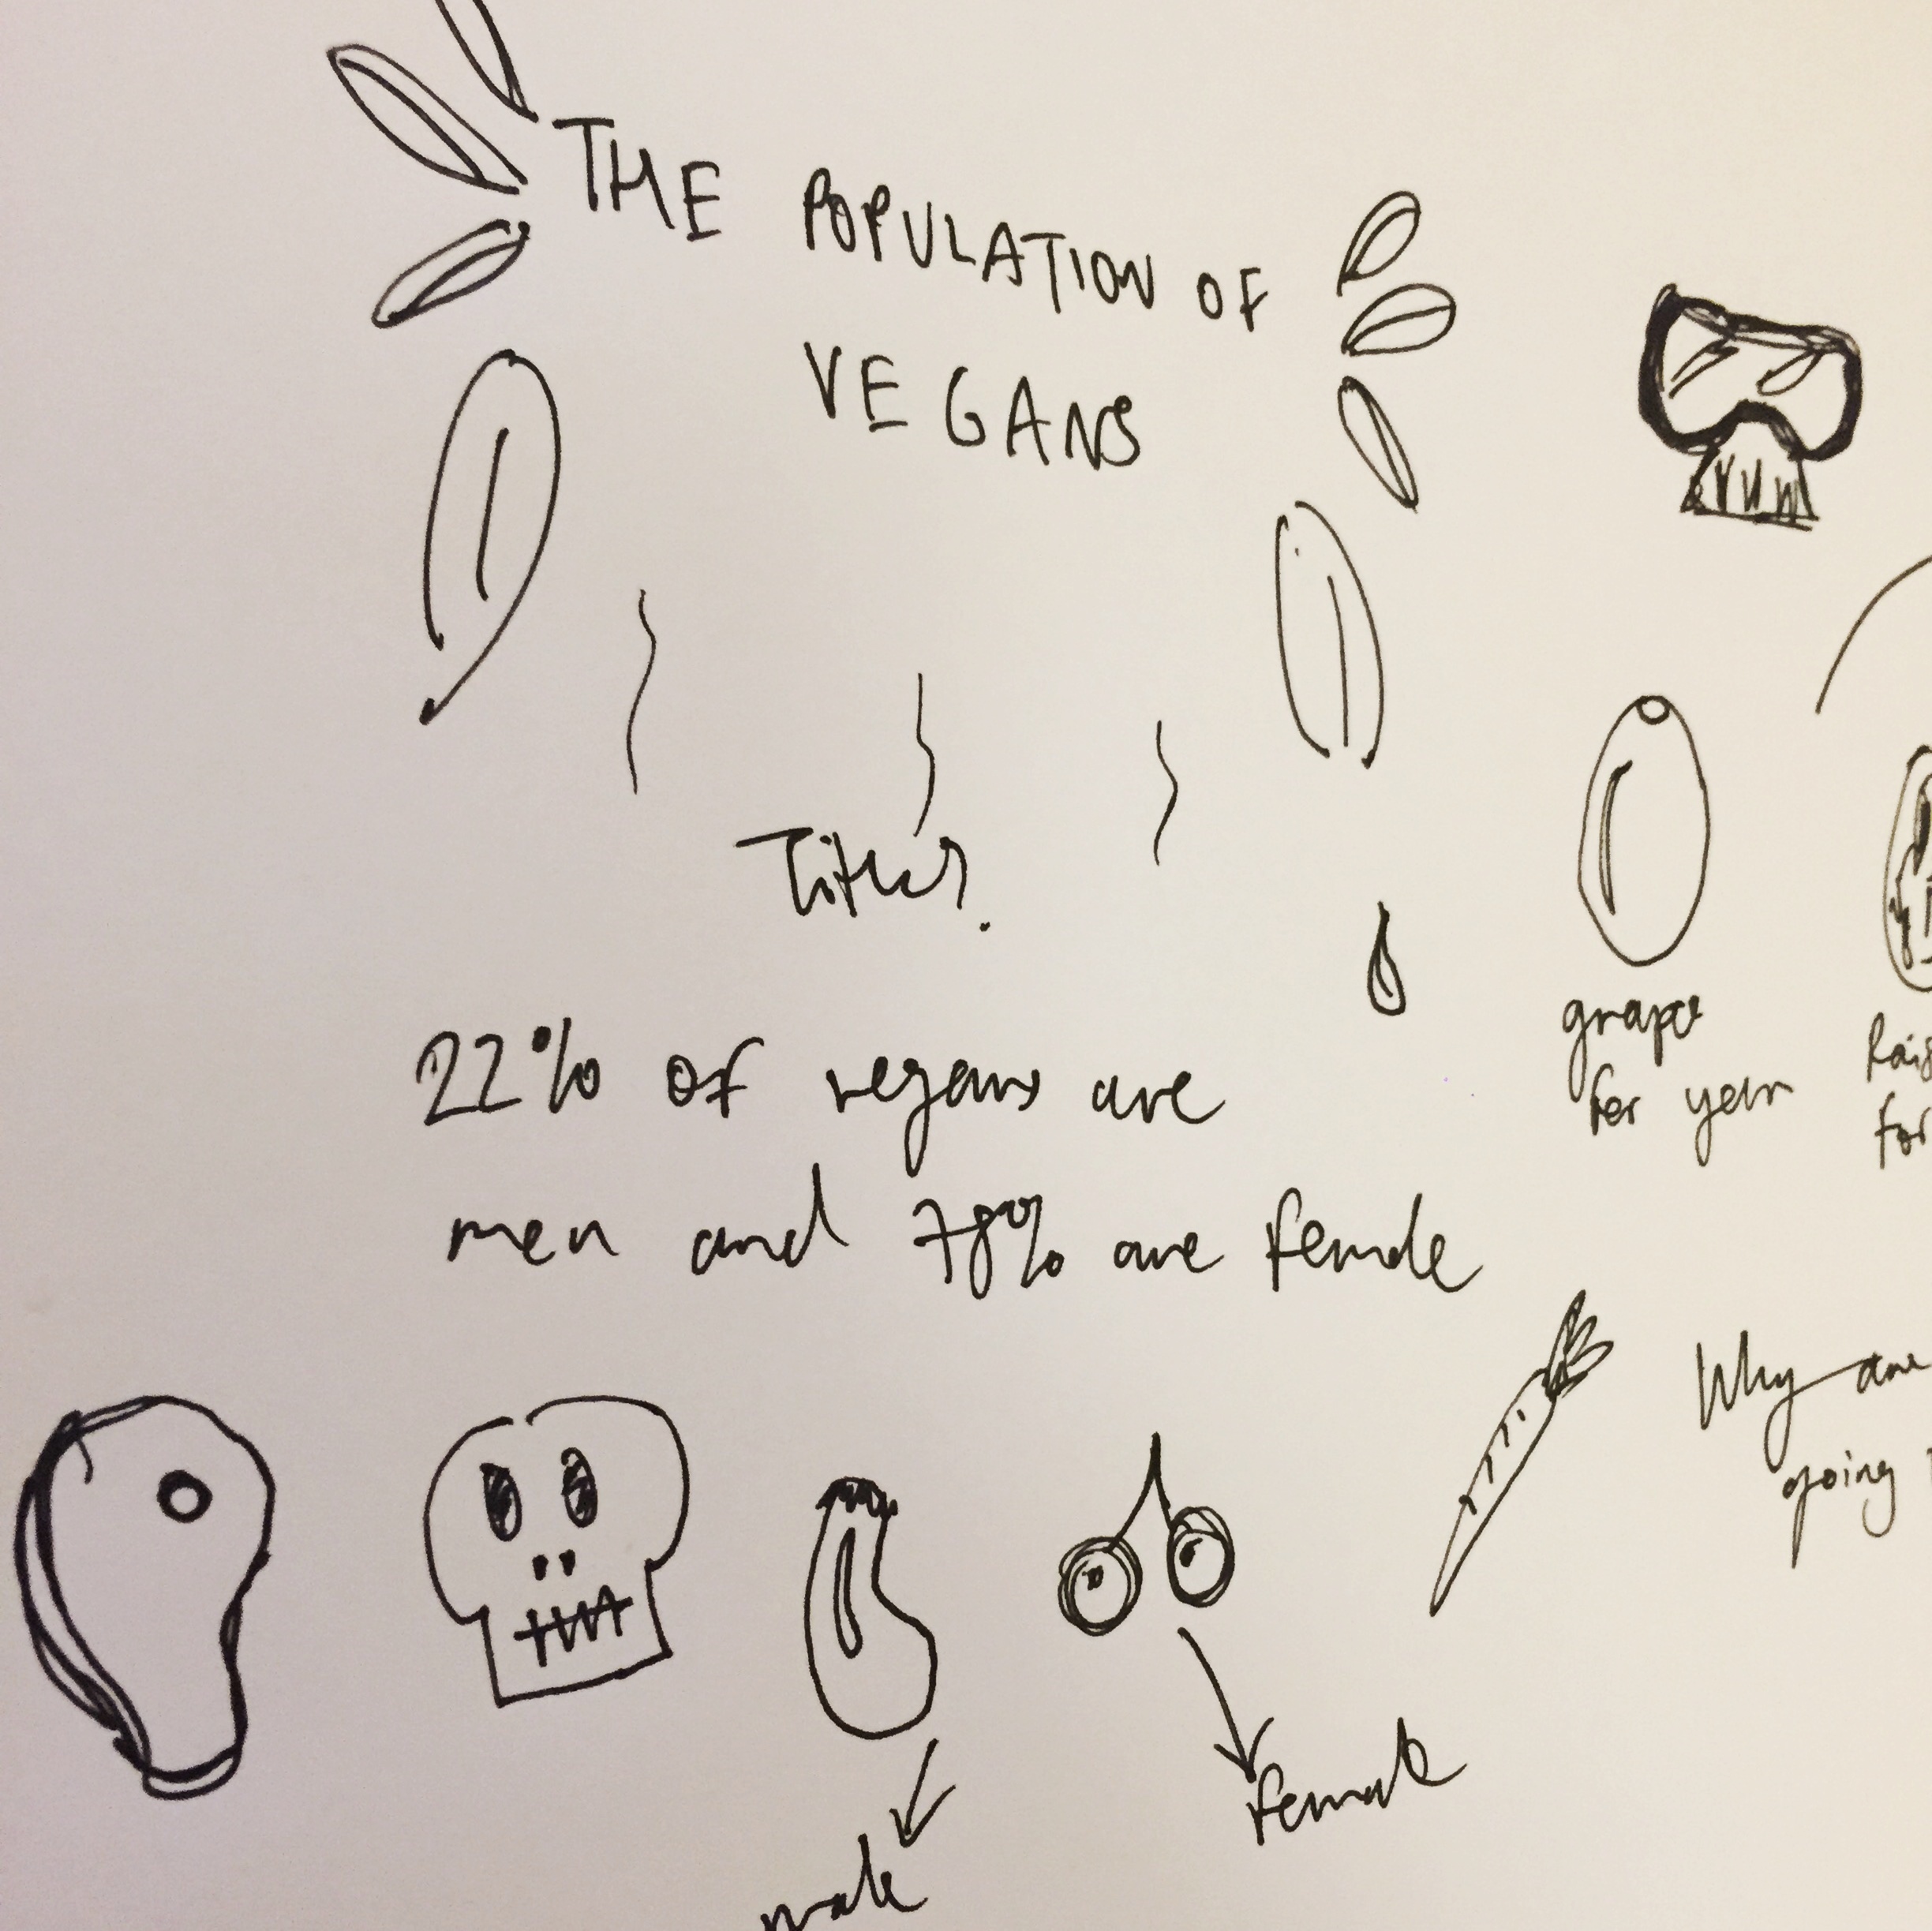 THE POPULATION OF
VEGANS
Titles?
22% of vegans are
men and 78% are female
grape
for year
Why are
going
male
female